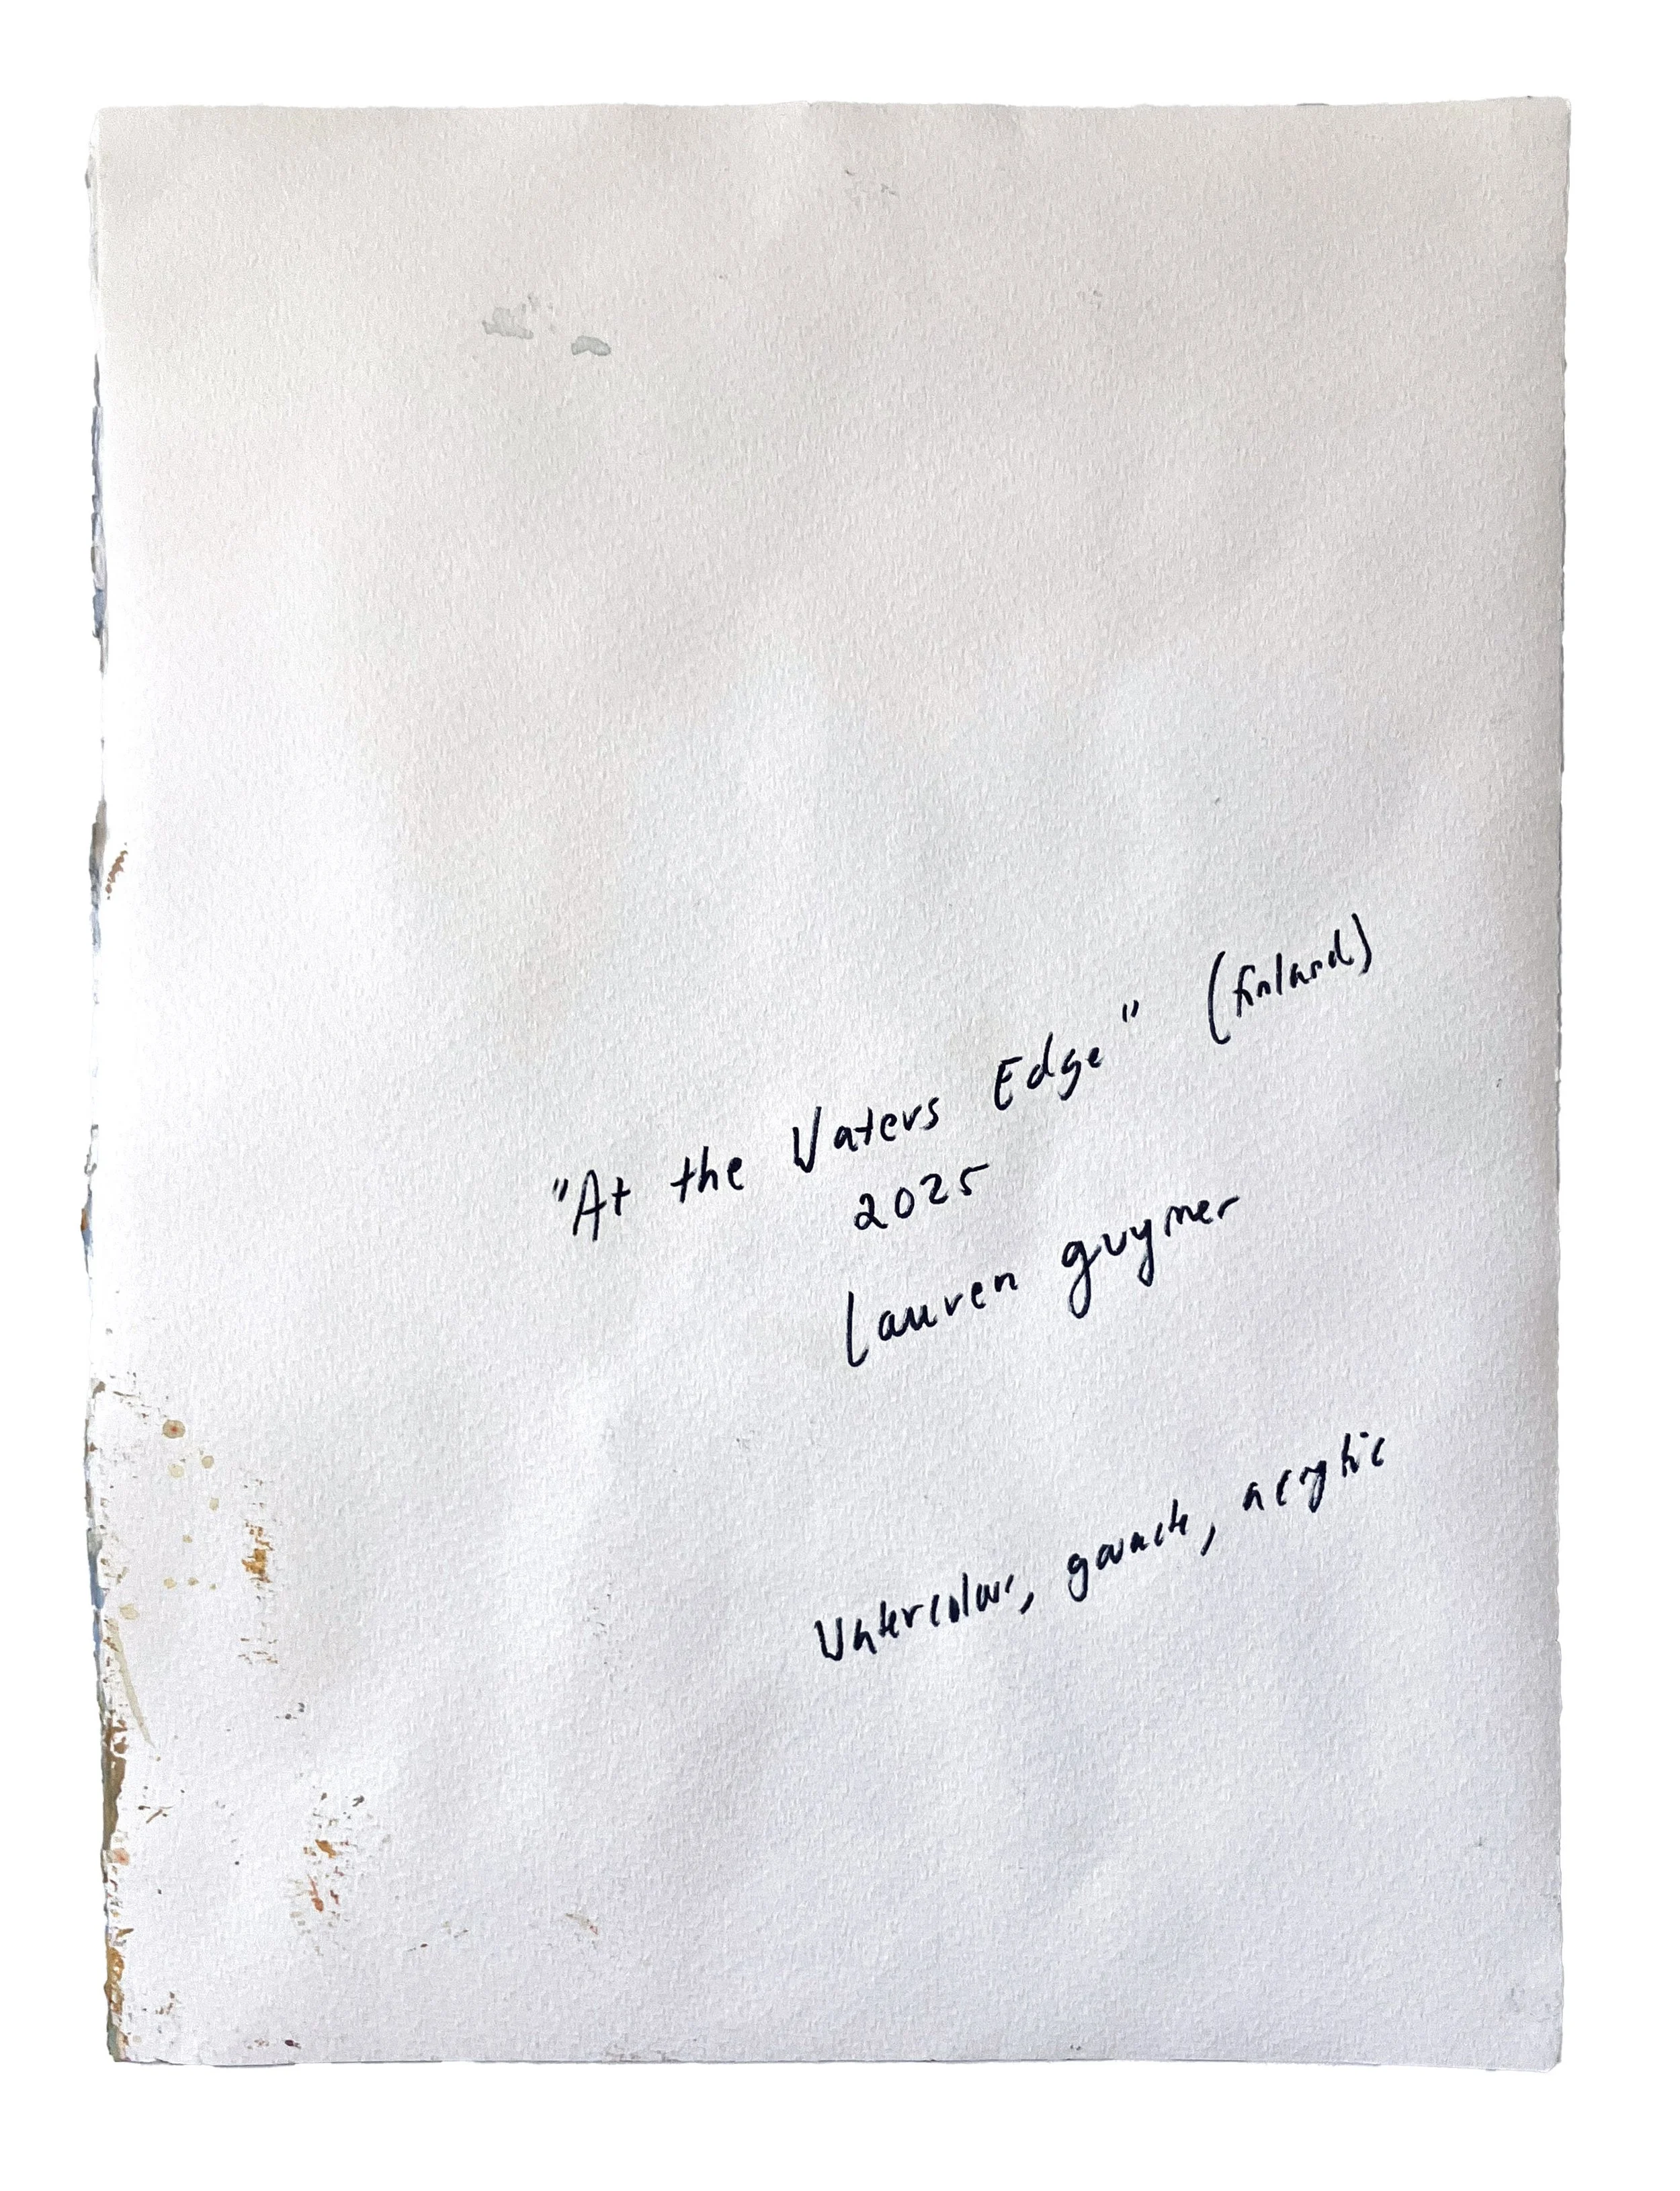 "At the Waters Edge" (finland)
2025
Lauren guymer
Watercolour, gouache, acrylic